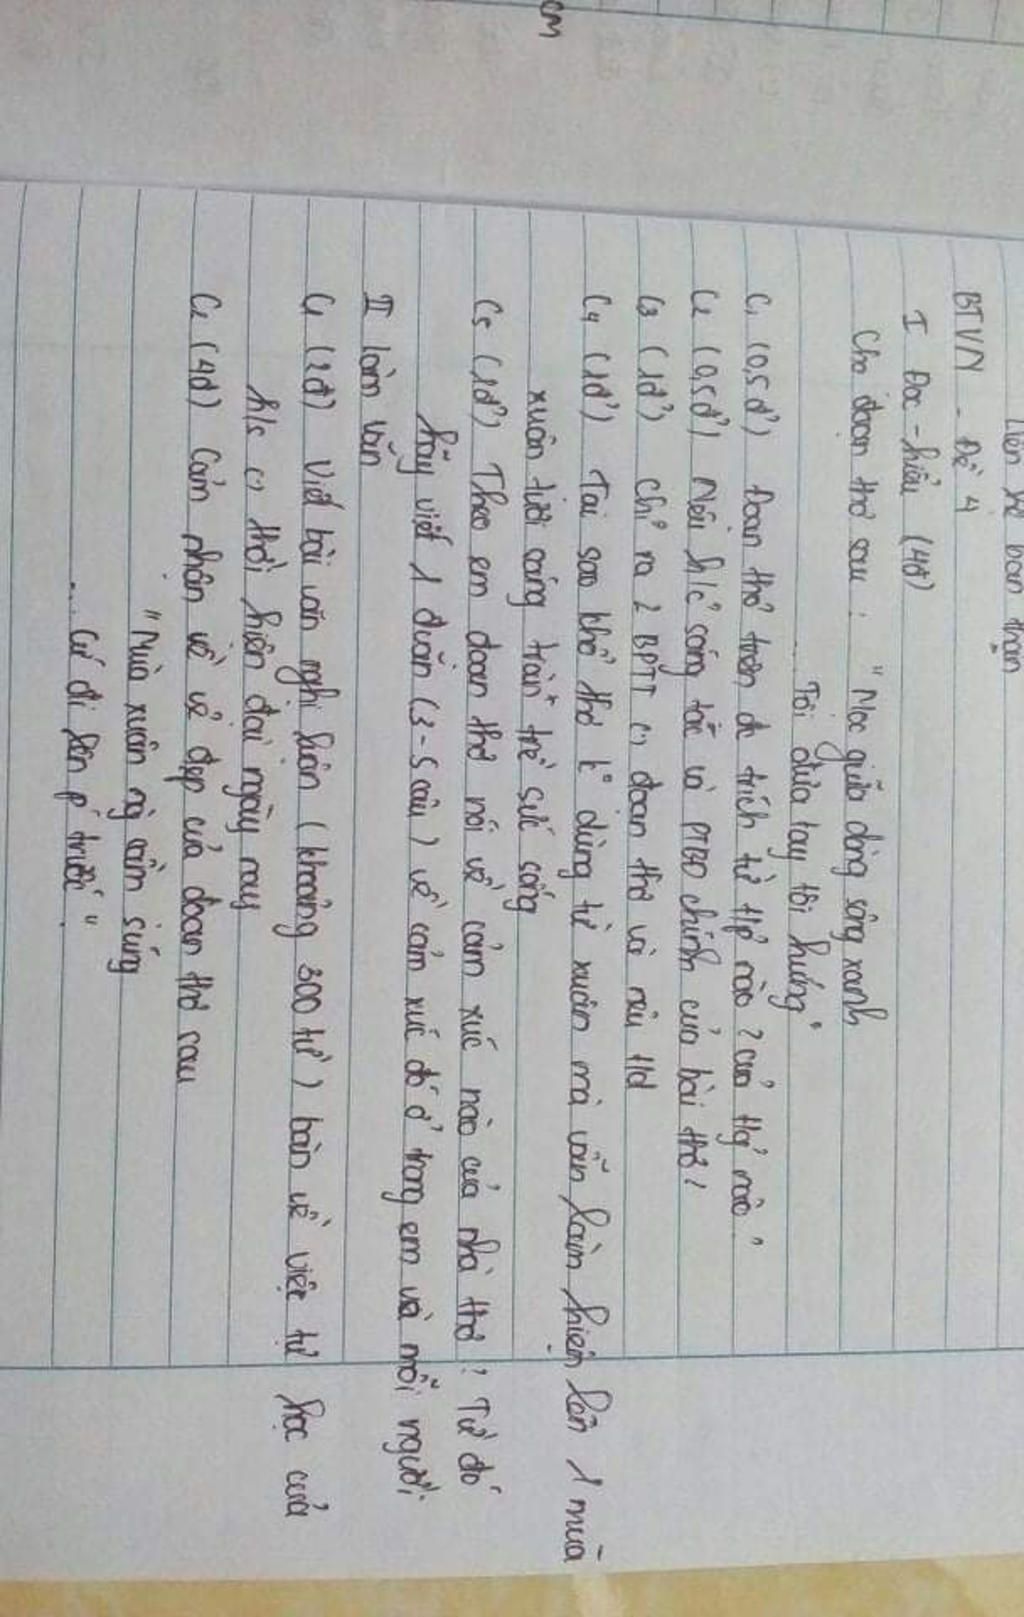 cm
Liên hệ bản thân
BTVN - Đề 4
I Đọc - hiểu (4đ)
Cho đoạn thơ sau : "Mọc giữa dòng sông xanh
... Tôi đưa tay tôi hứng"
C1 (0,5đ) Đoạn thơ trên đc trích từ t/p nào? của t/g nào?
C2 (0,5đ) Nêu h/c sáng tác và PTBĐ chính của bài thơ?
C3 (1đ) chỉ ra 2 BPTT () đoạn thơ và nêu t/d
C4 (1đ) Tại sao khổ thơ ko dùng từ xuân mà vẫn làm hiện lên 1 mùa
xuân tươi sáng tràn trề sức sống
C5 (1đ) Theo em đoạn thơ nói về cảm xúc nào của nhà thơ? Từ đó
hãy viết 1 đvăn (3-5 câu) về cảm xúc đó ở trong em và mỗi người.
II làm văn
C1 (2đ) Viết bài văn nghị luận (khoảng 300 từ) bàn về việc tự học của
h/s () thời hiện đại ngày nay
C2 (4đ) Cảm nhận về vẻ đẹp của đoạn thơ sau
"Mùa xuân ng cầm súng
... Cứ đi lên p trước".